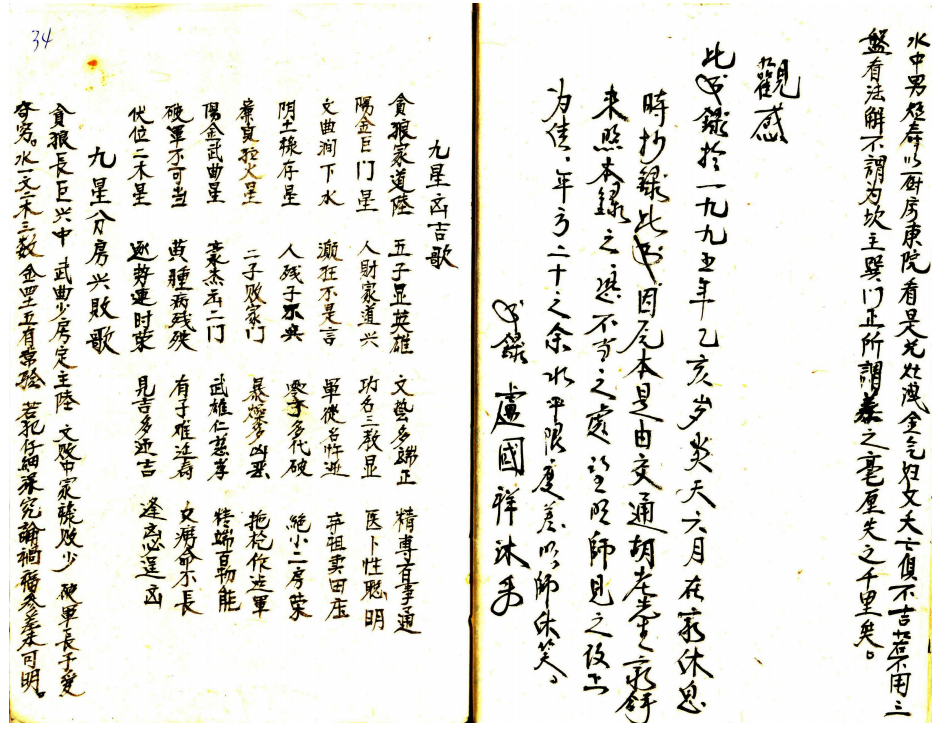 水中男短寿以厨房東院看是尤灶洩金气妇女大亡俱不吉若不用三
盤看法解不謂为坎主巽门正所謂差之毫厘失之千里矣。
觀感
此书錄於一九九五年乙亥岁炎天六月在家休息
時抄録此书因元本是由交通胡老先生家
来照本録之遇不方之處望明師見之改正
为佳,年方二十之余水平限度差以師休笑、
书錄 盧國祥沐手
34
九星凶吉歌
貪狼家道陸 五子显英雄 文藝多端正 精專百事通
陽金巨门星 人財家道兴 功名三教显 医卜性聪明
文曲涧下水 癫狂不是言 軍徒名忤逆 弃祖卖田庄
阴土禄存星 人残子不兴 寥子多代破 絕小二房荣
廉貞独火星 二子败家门 暴燥多凶恶 拖枪作逆軍
陽金武曲星 豪杰出二门 武雄仁慈孝 特端百物能
破軍不可当 黄腫病残殃 有子难送寿 女痨命不長
代位二木星 逐势運时荣 見吉多迎吉 逢恶逞凶
九星分房兴敗歌
貪狼長巨兴中 武曲少房定主陸 文败中家禄败少 破軍長子愛
夺穷。水一文二木三数 金四土五有常验 若犯仔細深究論禍福参差末可明。